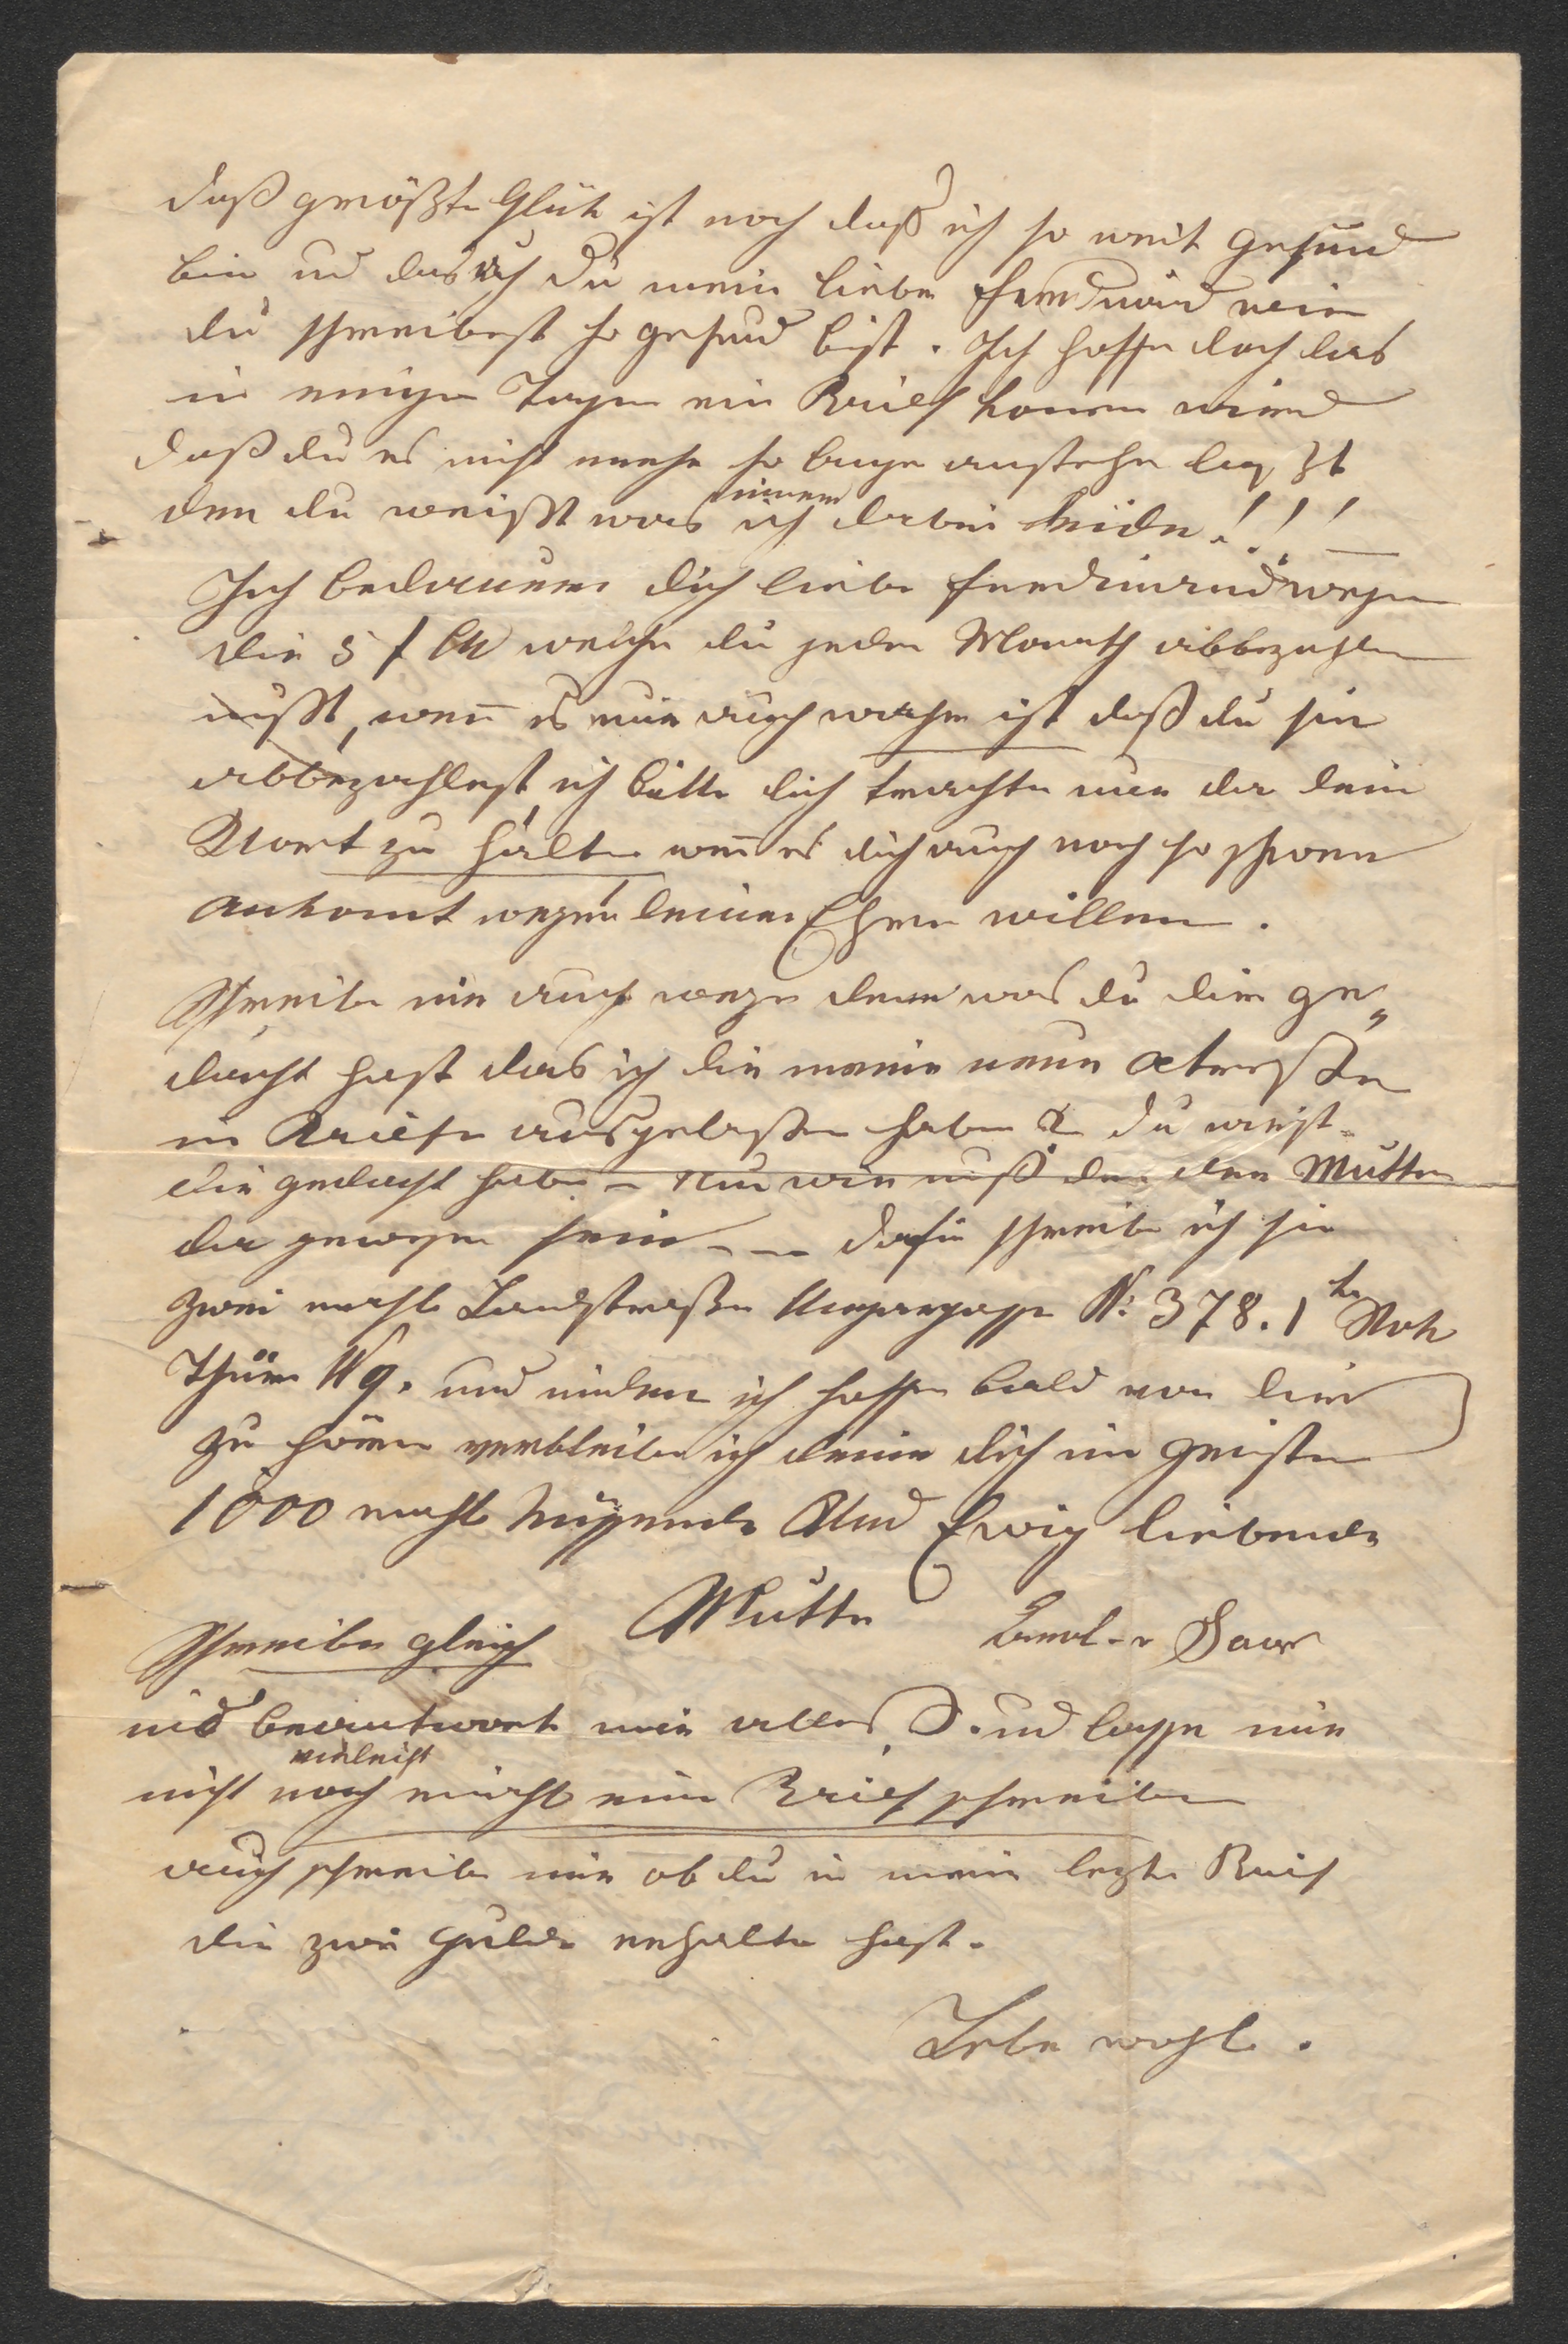 daß größte Glük ist noch daß ich so weit gesund
bin und das auch du mein lieber Ferdinand wie
du schreibest so gesund bist. Ich hoffe doch das
in einigen Tagen ein Brief komen wird
daß du es nicht mehr so lange anstehn laszt
den du weißt was ich imer dabei leide!!! —
Ich bedauere dich lieber Ferdinand wegen
die 5 f CM welche du jeden Monath abbezahlen
mußt, wen̄ es nur auch wahr ist daß du sie
abbezahlest, ich bitte dich trachte nur da dein
Wort zu halten wen̄ es dich auch noch so schwer
ankomt wegen deiner Ehre willen.
Schreibe mir auch wegen dem was du dir ge„
dacht hast das ich dir meine neue Atreße
in Briefe ausgelaßen habe & du weist
die gedacht habe – Nur wie muß da der Mutter
da gewesen sein – – dafür schreibe ich sie
zwei mahl Landstraße Ungargasse N: 378. 1te Stok
Thür N 9. und indem ich hoffe bald von dir
zu hören verbleibe ich deine dich im Geiste
1000 mahl küssende Und Ewig liebende
Mutter
Saar
Schreibe gleich
und beantwort mir alles, und lasse mir
nicht vieleicht noch mahl ein Brief schreiben
auch schreibe mir ob du in mein lezte Brief
die zwei Gulde erhalte hast.
Lebe wohl.